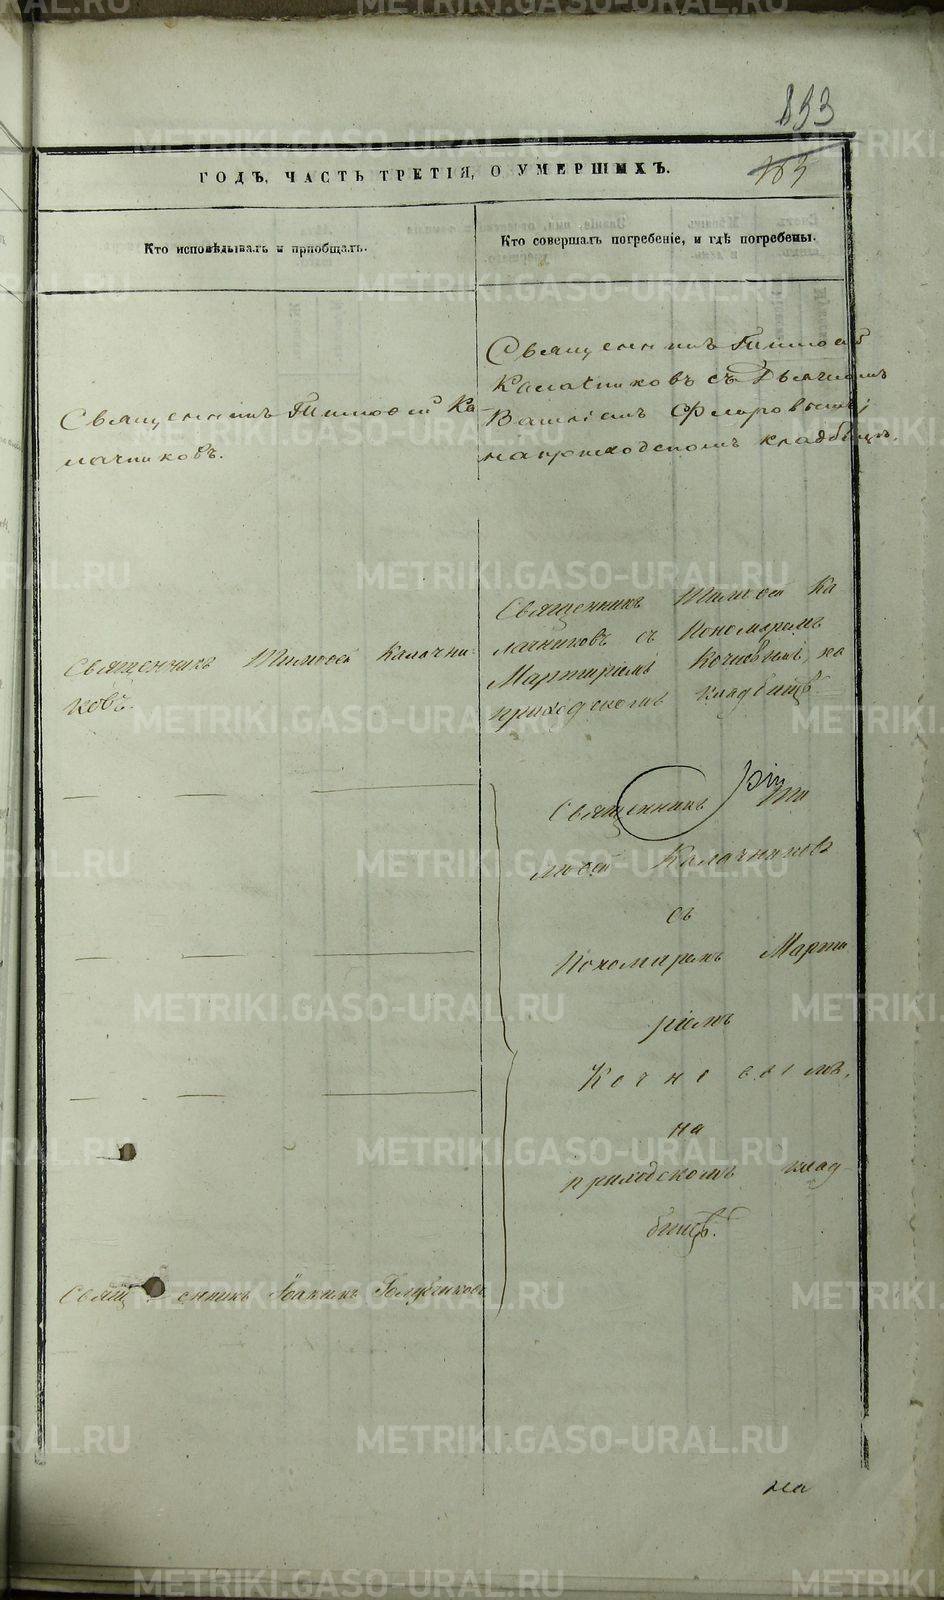 853
163
ГОДЪ, ЧАСТЬ ТРЕТІЯ, О УМЕРШИХЪ.
Кто исповѣдывалъ и пріобщалъ.
Кто совершалъ погребеніе, и гдѣ погребены.
Священникъ Тимоѳей Ка
лачниковъ.
Священникъ Тимоѳей
Калачниковъ съ Дьячкомъ
Василіемъ Флоровымъ;
на приходскомъ кладбищѣ.
Священникъ Тимоѳей Калачни-
ковъ.
Священникъ Тимоѳей Ка
лачниковъ съ Пономаремъ
Мартиріемъ Кочневымъ, на
приходскомъ кладбищѣ
Священникъ Ти
моѳей Калачниковъ
съ
Пономаремъ Марти
ріемъ
Кочневымъ,
на
приходскомъ клад-
бищѣ.
Священникъ Іоаннъ Голубчиковъ
на
METRIKI.GASO-URAL.RU